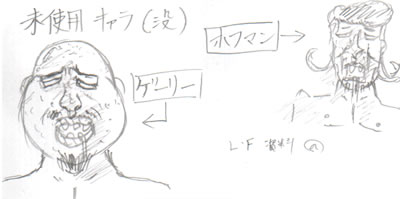 未使用 キャラ(没)
ホフマン
ゲーリー
L.F 資料